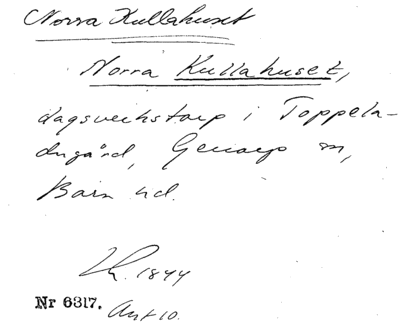 Norra Kullahuset
Norra Kullahuset,
dagsverkstorp i Toppela-
dugård, Genarp sn,
Bara hd.
1844
Nr 6317. Ant 10.